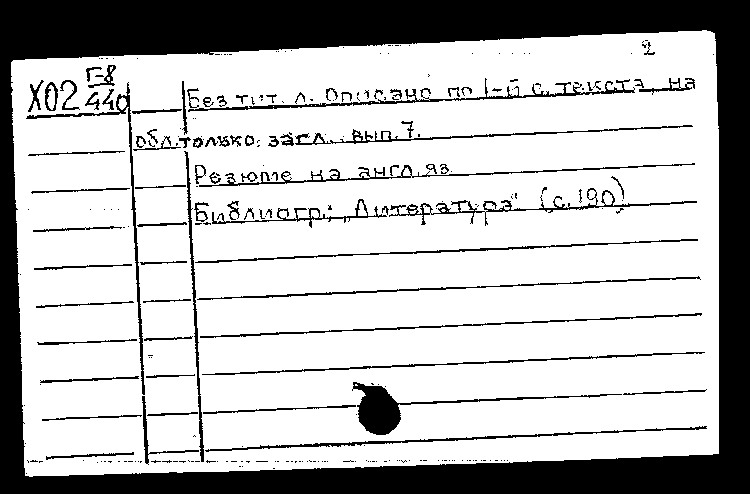 2
Х02 Г-8
440
Без тит. л. Описано по 1-й с. текста, на
обл. только: загл., вып. 7.
Резюме на англ. яз.
Библиогр.: „Литература" (с. 190)